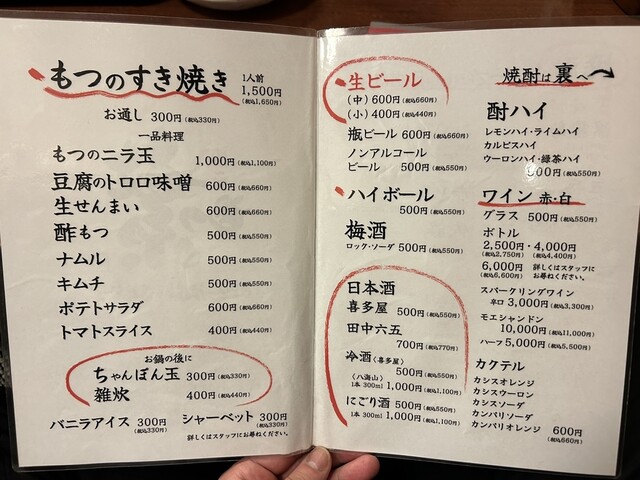 もつのすき焼き 1人前
1,500円
(税込1,650円)
お通し 300円(税込330円)
一品料理
もつのニラ玉 1,000円(税込1,100円)
豆腐のトロロ味噌 600円(税込660円)
生せんまい 600円(税込660円)
酢もつ 500円(税込550円)
ナムル 500円(税込550円)
キムチ 500円(税込550円)
ポテトサラダ 600円(税込660円)
トマトスライス 400円(税込440円)
お鍋の後に
ちゃんぽん玉 300円(税込330円)
雑炊 400円(税込440円)
バニラアイス 300円(税込330円) シャーベット 300円(税込330円)
詳しくはスタッフにお尋ねください。
生ビール
(中) 600円(税込660円)
(小) 400円(税込440円)
瓶ビール 600円(税込660円)
ノンアルコール
ビール 500円(税込550円)
ハイボール
500円(税込550円)
梅酒
ロック・ソーダ 500円(税込550円)
日本酒
喜多屋 500円(税込550円)
田中六五
700円(税込770円)
冷酒〈喜多屋〉
500円(税込550円)
〈八海山〉
1本 300ml 1,000円(税込1,100円)
にごり酒 500円(税込550円)
1本 300ml 1,000円(税込1,100円)
焼酎は裏へ
酎ハイ
レモンハイ・ライムハイ
カルピスハイ
ウーロンハイ・緑茶ハイ
500円(税込550円)
ワイン 赤・白
グラス 500円(税込550円)
ボトル
2,500円・4,000円
(税込2,750円) (税込4,400円)
6,000円 詳しくはスタッフに
(税込6,600円) お尋ねください。
スパークリングワイン
辛口 3,000円(税込3,300円)
モエシャンドン
10,000円(税込11,000円)
ハーフ 5,000円(税込5,500円)
カクテル
カシスオレンジ
カシスウーロン
カシスソーダ
カンパリソーダ
カンパリオレンジ 600円
(税込660円)